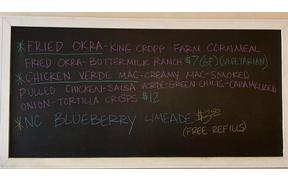 *FRIED OKRA-KING CROPP FARM CORNMEAL
FRIED OKRA-BUTTERMILK RANCH $7 (GF) (VEGETARIAN)
*CHICKEN VERDE MAC-CREAMY MAC-SMOKED
PULLED CHICKEN-SALSA VERDE-GREEN CHILIS-CARAMELIZED
ONION-TORTILLA CRISPS $12
*NC BLUEBERRY LIMEADE $3.50
(FREE REFILLS)